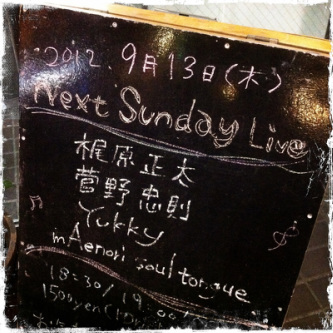 2012. 9月13日(木)
Next Sunday Live
梶原正太
菅野忠則
Yukky
mAenori soul tongue
18:30/19:00
1500yen